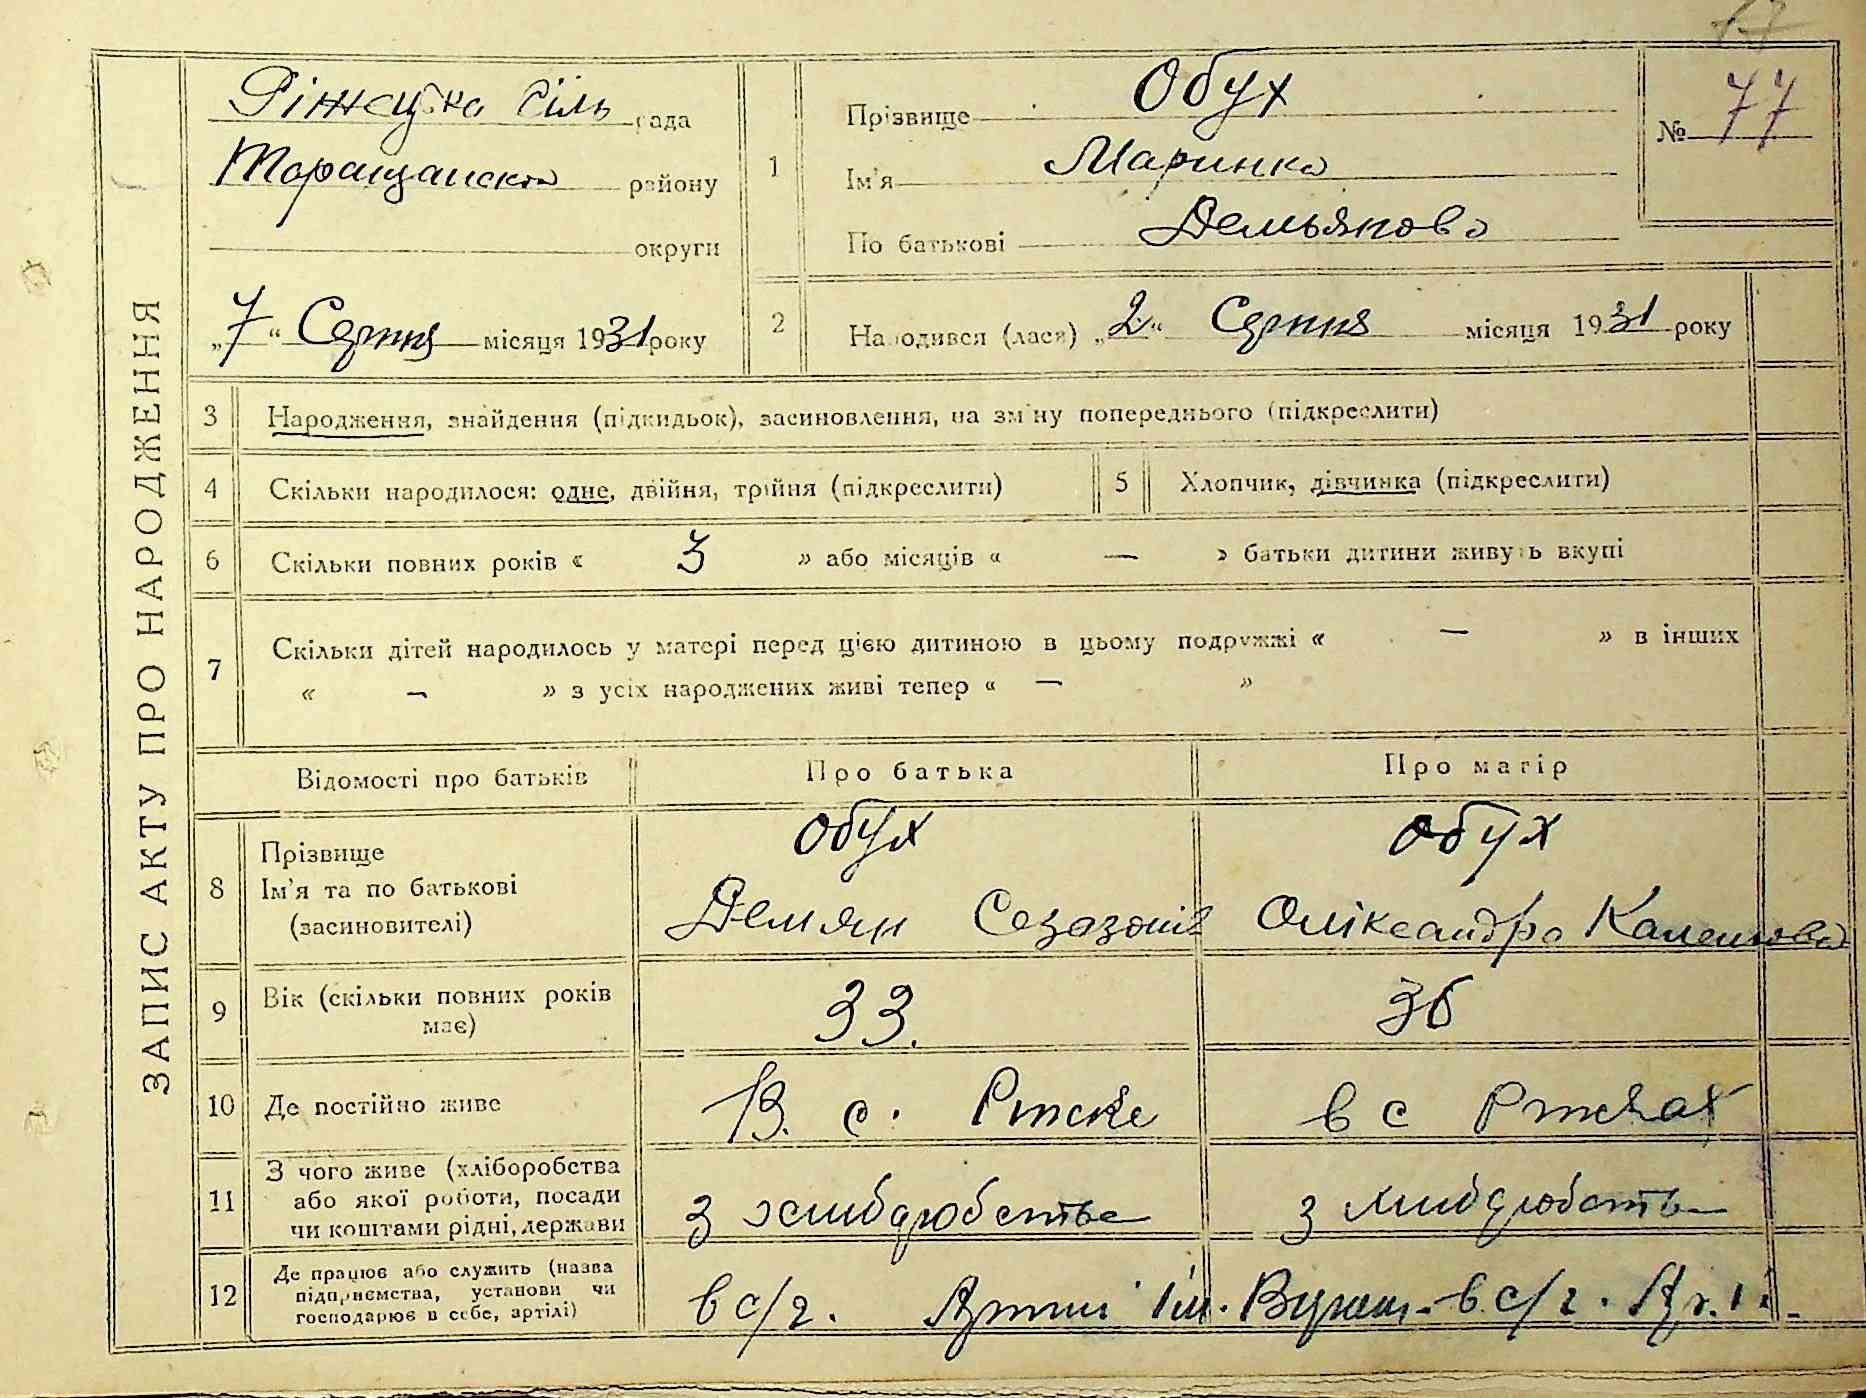 17
ЗАПИС АКТУ ПРО НАРОДЖЕННЯ
Ріжецька сіль рада
Таращанська району
округи
„7“ Серпня місяця 1931 року
1
Прізвище Обух
Ім'я Маринка
По батькові Демьянова
№ 77
2
Народився (лася) „2“ Серпня місяця 1931 року
3 Народження, знайдення (підкидьок), засиновлення, на зміну попереднього (підкреслити)
4 Скільки народилося: одне, двійня, трійня (підкреслити)
5 Хлопчик, дівчинка (підкреслити)
6 Скільки повних років « 3 » або місяців « — » батьки дитини живуть вкупі
7 Скільки дітей народилось у матері перед цією дитиною в цьому подружжі « — » в інших
« — » з усіх народжених живі тепер « — »
Відомості про батьків
Про батька
Про матір
8
Прізвище
Ім'я та по батькові
(засиновителі)
Обух
Демян
Обух
Оліксандра
9
Вік (скільки повних років
має)
33.
36
10 Де постійно живе
В. с.
в с
11
З чого живе (хліборобства
або якої роботи, посади
чи коштами рідні, держави
з
з
12
Де працює або служить (назва
підприємства, установи чи
господарює в себе, артілі)
в с/г. Артилі Ім.
в с/г.